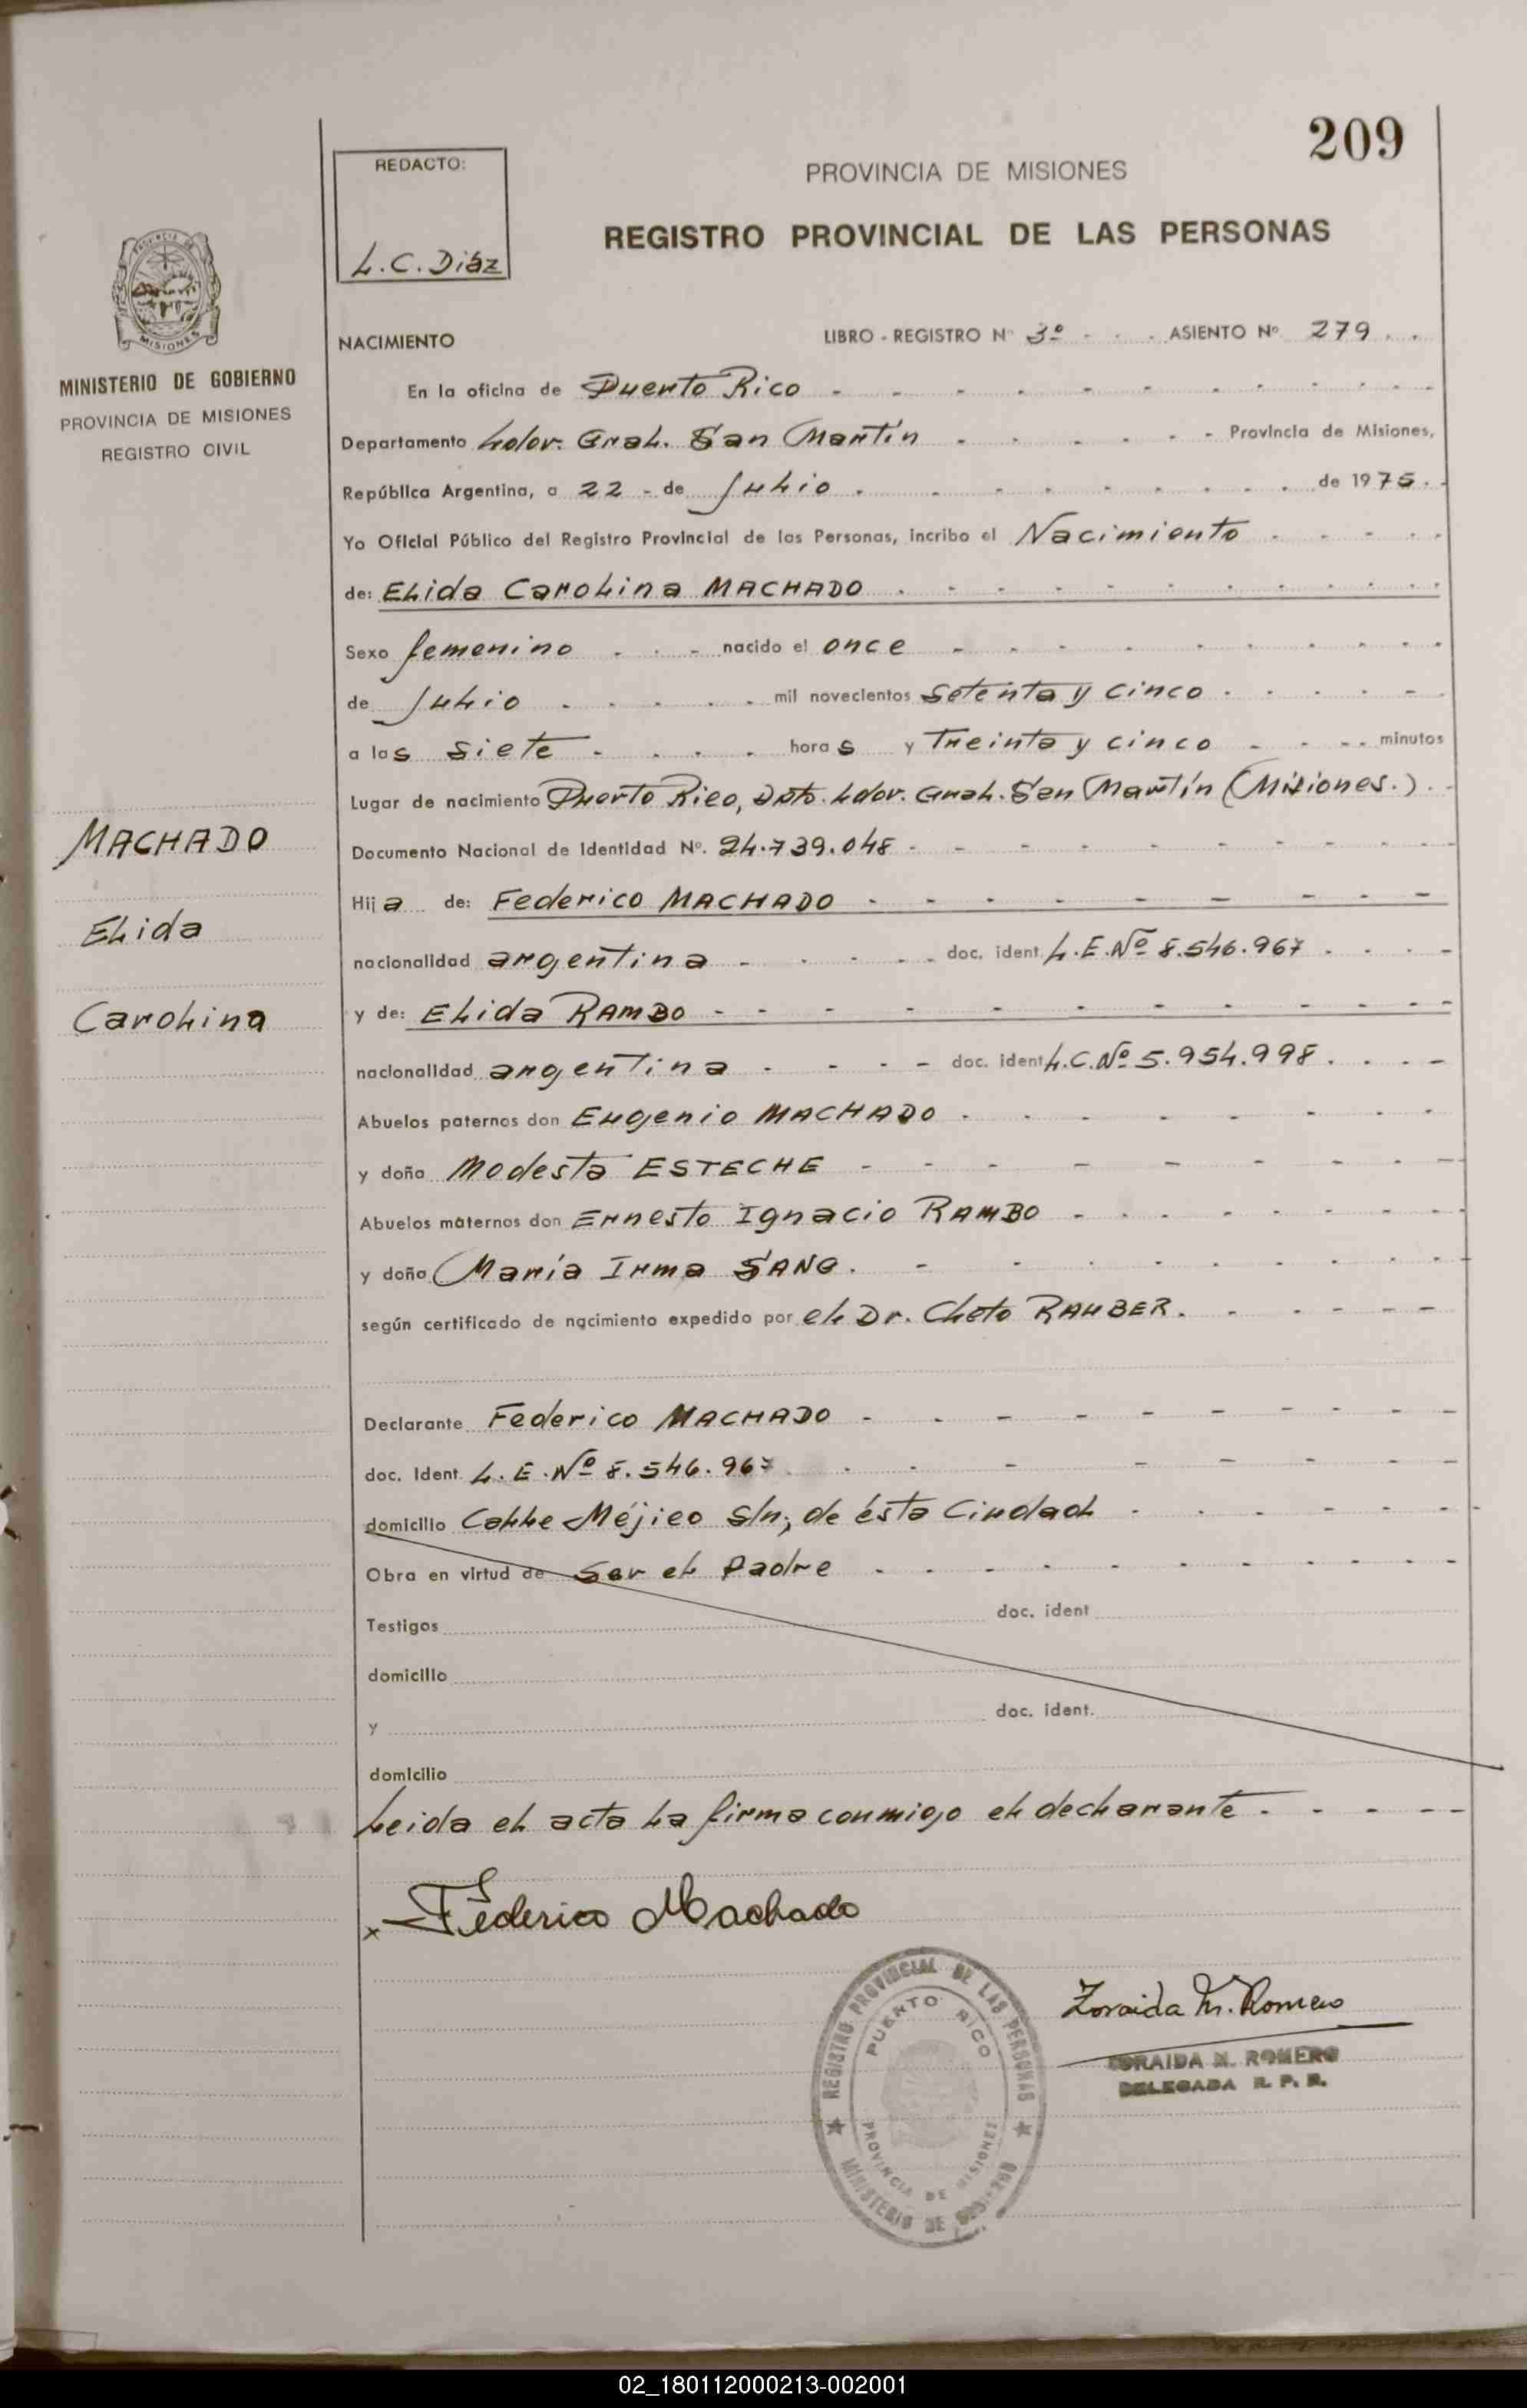 209
REDACTO:
L.C. Diáz
PROVINCIA DE MISIONES
REGISTRO PROVINCIAL DE LAS PERSONAS
PROVINCIA DE
MISIONES
MINISTERIO DE GOBIERNO
PROVINCIA DE MISIONES
REGISTRO CIVIL
NACIMIENTO LIBRO - REGISTRO Nº 3º ASIENTO Nº 279
En la oficina de Puerto Rico
Departamento Ldor. Gral. San Martín Provincia de Misiones,
República Argentina, a 22 - de Julio de 1975.
Yo Oficial Público del Registro Provincial de las Personas, incribo el Nacimiento
de: Elida Carolina MACHADO
Sexo femenino nacido el once
de Julio mil novecientos Setenta y cinco
a las siete horas y Treinta y cinco minutos
Lugar de nacimiento Puerto Rico, Dpto. Ldor. Gral. San Martín (Misiones.)
MACHADO
Elida
Carolina
Documento Nacional de Identidad Nº. 24.739.048
Hija de: Federico MACHADO
nacionalidad argentina doc. ident. L.E.Nº 8.546.967
y de: Elida RAMBO
nacionalidad argentina doc. ident L.C.Nº 5.954.998
Abuelos paternos don Eugenio MACHADO
y doña Modesta ESTECHE
Abuelos maternos don Ernesto Ignacio RAMBO
y doña María Irma SANG.
según certificado de nacimiento expedido por el Dr. Cleto RAUBER.
Declarante Federico MACHADO
doc. Ident L.E.Nº 8.546.967
domicilio Calle Méjico s/n, de ésta Ciudad
Obra en virtud de Ser el Padre
Testigos doc. ident
domicilio
y doc. ident.
domicilio
Leida el acta la firma conmigo el declarante
x Federico Machado
REGISTRO PROVINCIAL DE LAS PERSONAS
PUERTO RICO
PROVINCIA DE MISIONES
MINISTERIO DE GOBIERNO
Zoraida M. Romero
ZORAIDA M. ROMERO
DELEGADA R. P. P.
02_180112000213-002001